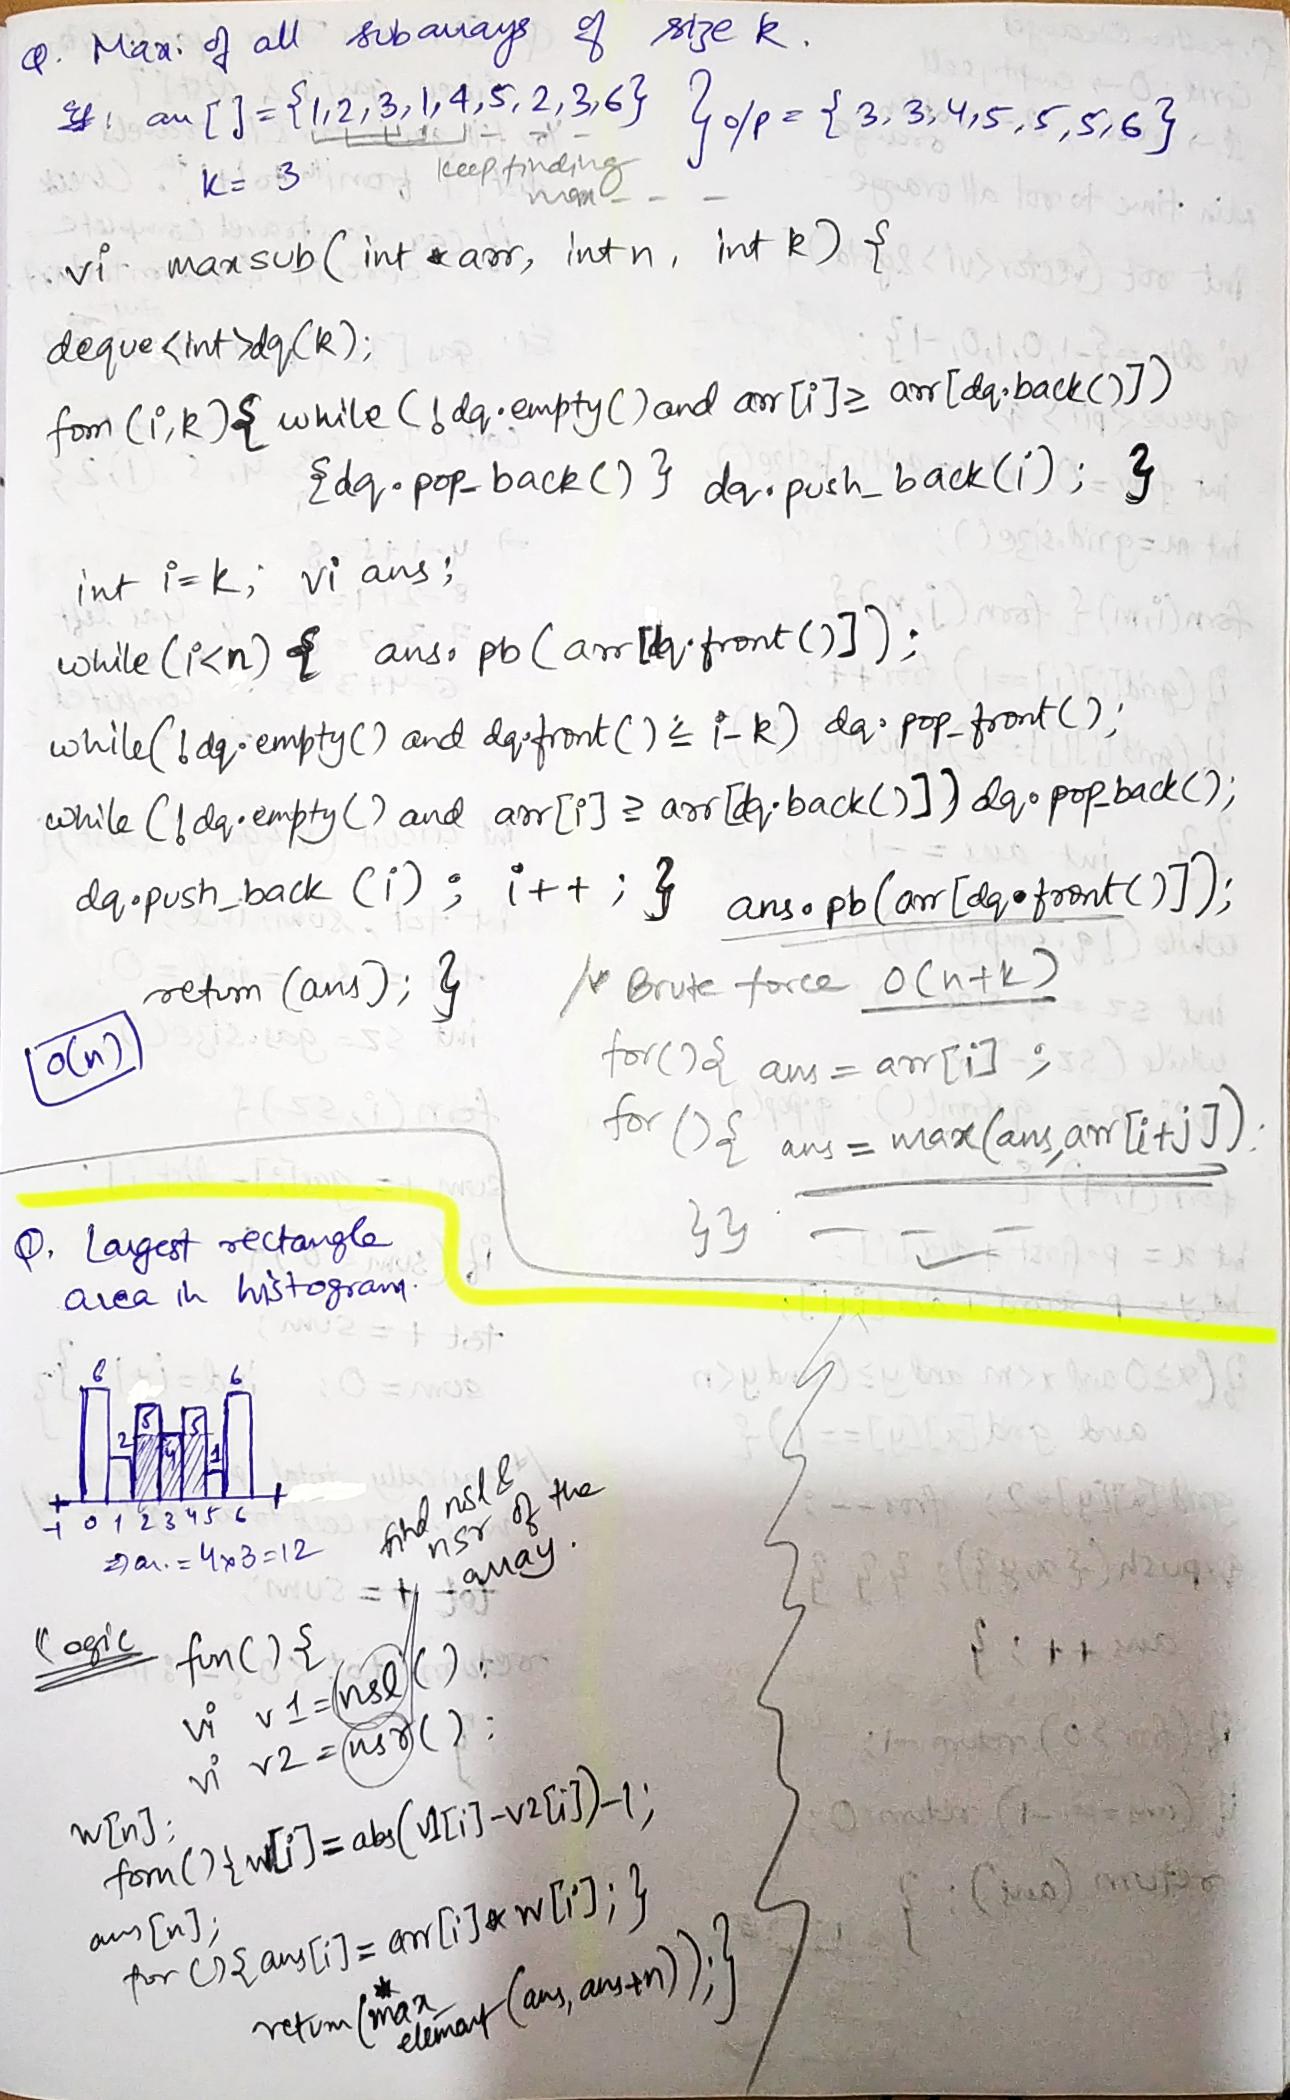 Q. Max. of all subarrays of size k.
Eg. arr[]={1,2,3,1,4,5,2,3,6} } o/p = {3,3,4,5,5,5,6}
k=3 keep finding
max - - -
vi maxsub(int *arr, int n, int k) {
deque<int>dq(k);
forn(i,k){ while(!dq.empty() and arr[i]≥ arr[dq.back()])
{dq.pop_back()} dq.push_back(i); }
int i=k; vi ans;
while(i<n) { ans.pb(arr[dq.front()]);
while(!dq.empty() and dq.front() ≤ i-k) dq.pop_front();
while(!dq.empty() and arr[i] ≥ arr[dq.back()]) dq.pop_back();
dq.push_back(i); i++; } ans.pb(arr[dq.front()]);
return (ans); }
O(n)
Brute force O(n+k)
for(){ ans = arr[i];
for(){ ans = max(ans,arr[i+j]);
}} - - -
Q. Largest rectangle
area in histogram.
6 2 5 4 5 1 6
-1 0 1 2 3 4 5 6
⇒ ar. = 4x3=12
find nsl &
nsr of the
array.
Logic fun(){
vi v1 = nsl();
vi v2 = nsr();
w[n];
forn(){w[i]=abs(v1[i]-v2[i])-1;
ans[n];
for(){ans[i]=arr[i]*w[i];}
return(*max_element(ans,ans+n));}